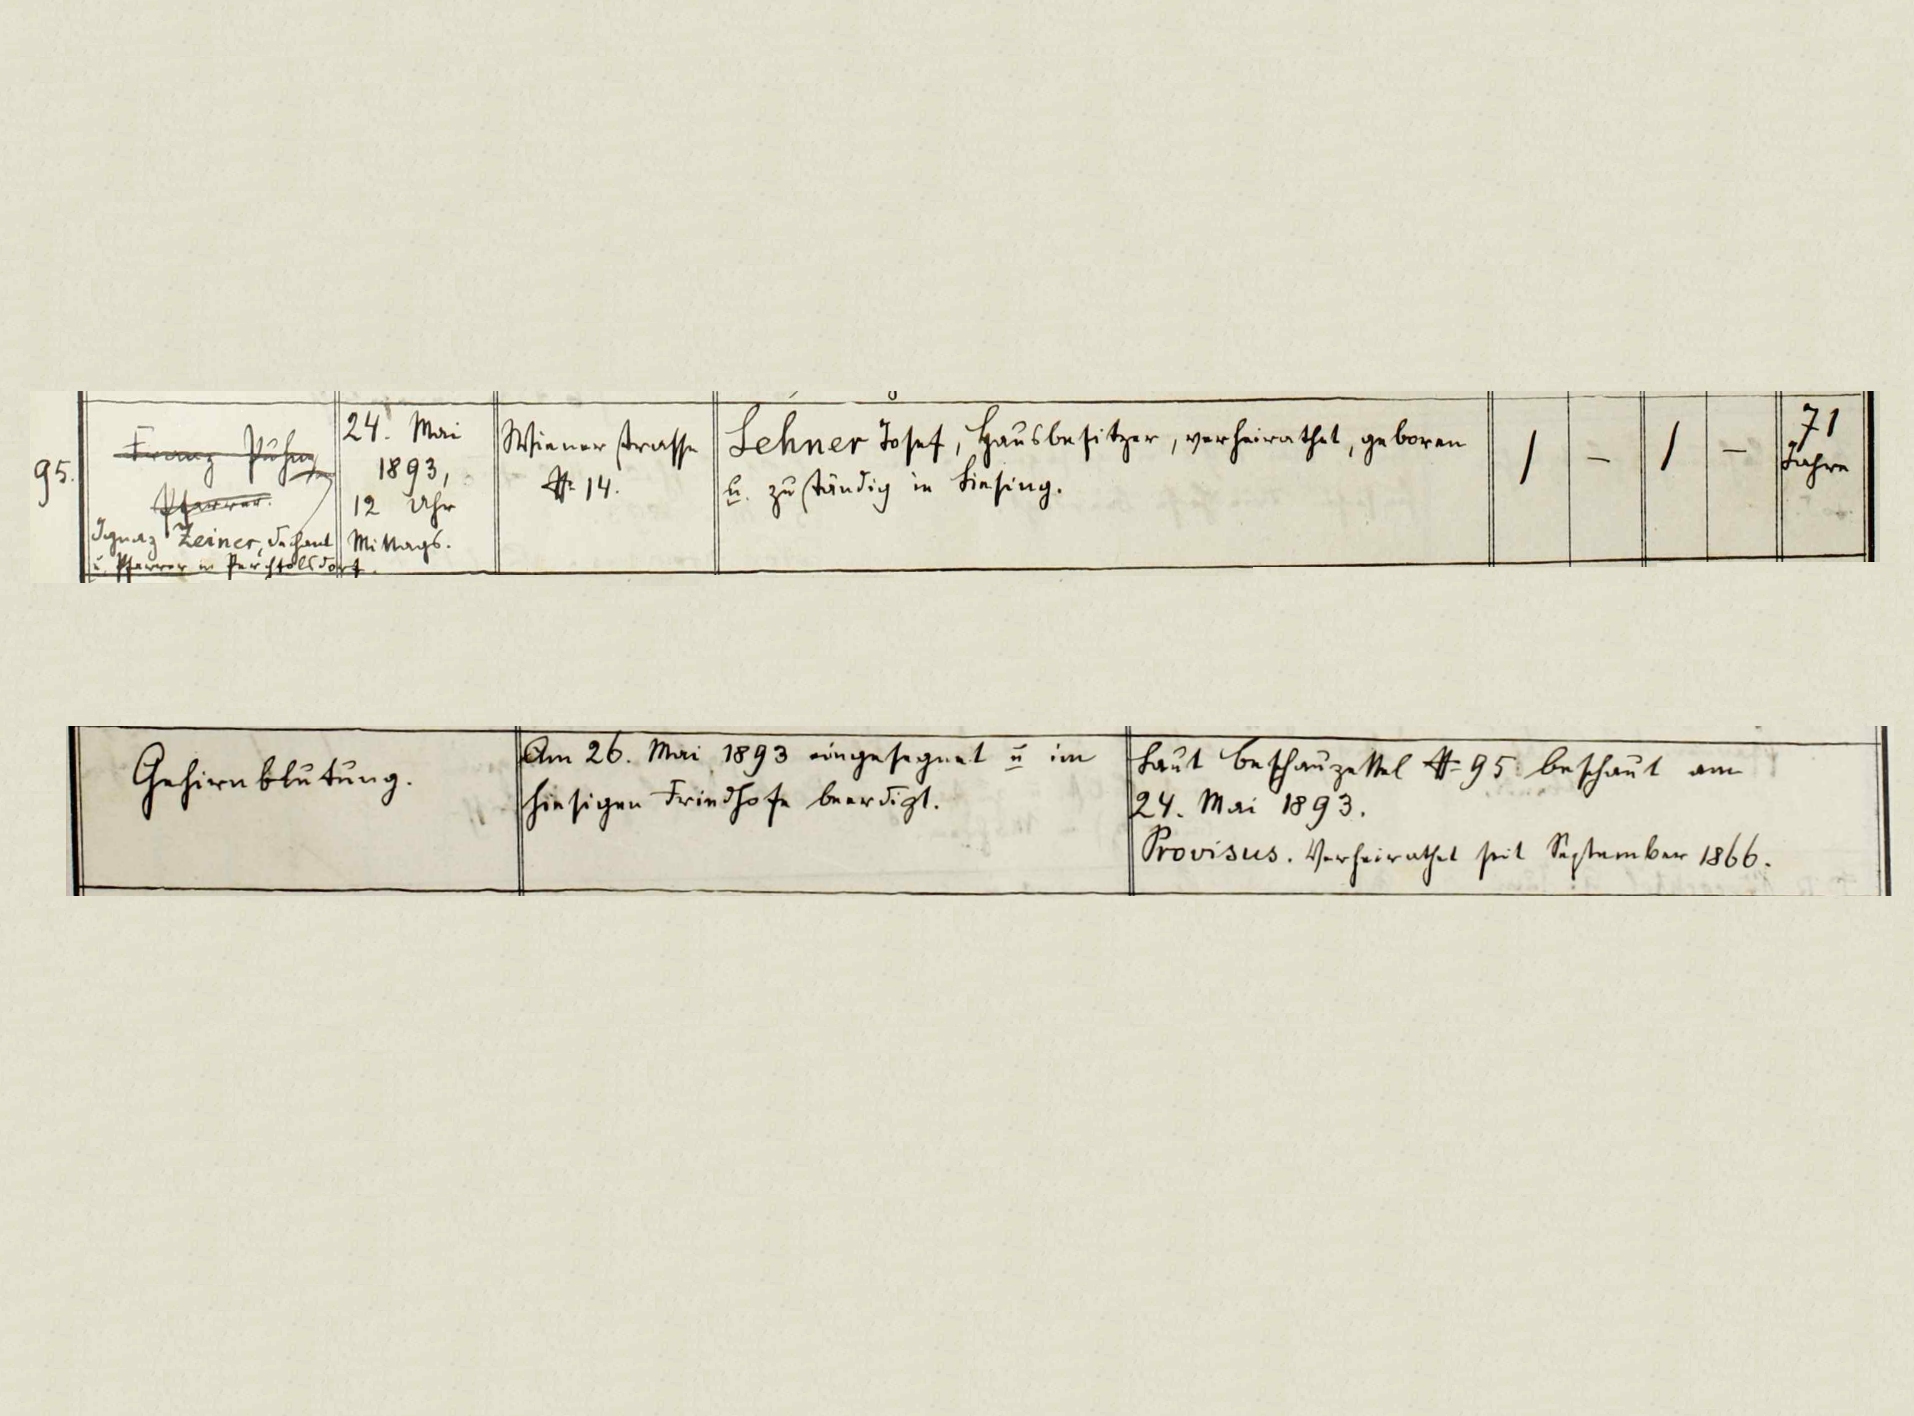 95.
Franz Puhm,
Pfarrer.
Ignaz Zeiner, Dechant
u. Pfarrer in Perchtoldsdorf.
24. Mai
1893,
12 Uhr
Mittags.
Wienerstrasse
№ 14.
Lehner Josef, Hausbesitzer, verheirathet, geboren
u. zuständig in Liesing.
/
–
/
–
71
Jahre
Gehirnblutung.
Am 26. Mai 1893 eingesegnet u im
hiesigen Friedhofe beerdigt.
Laut Beschauzettel № 95 beschaut am
24. Mai 1893.
Provisus. Verheirathet seit September 1866.